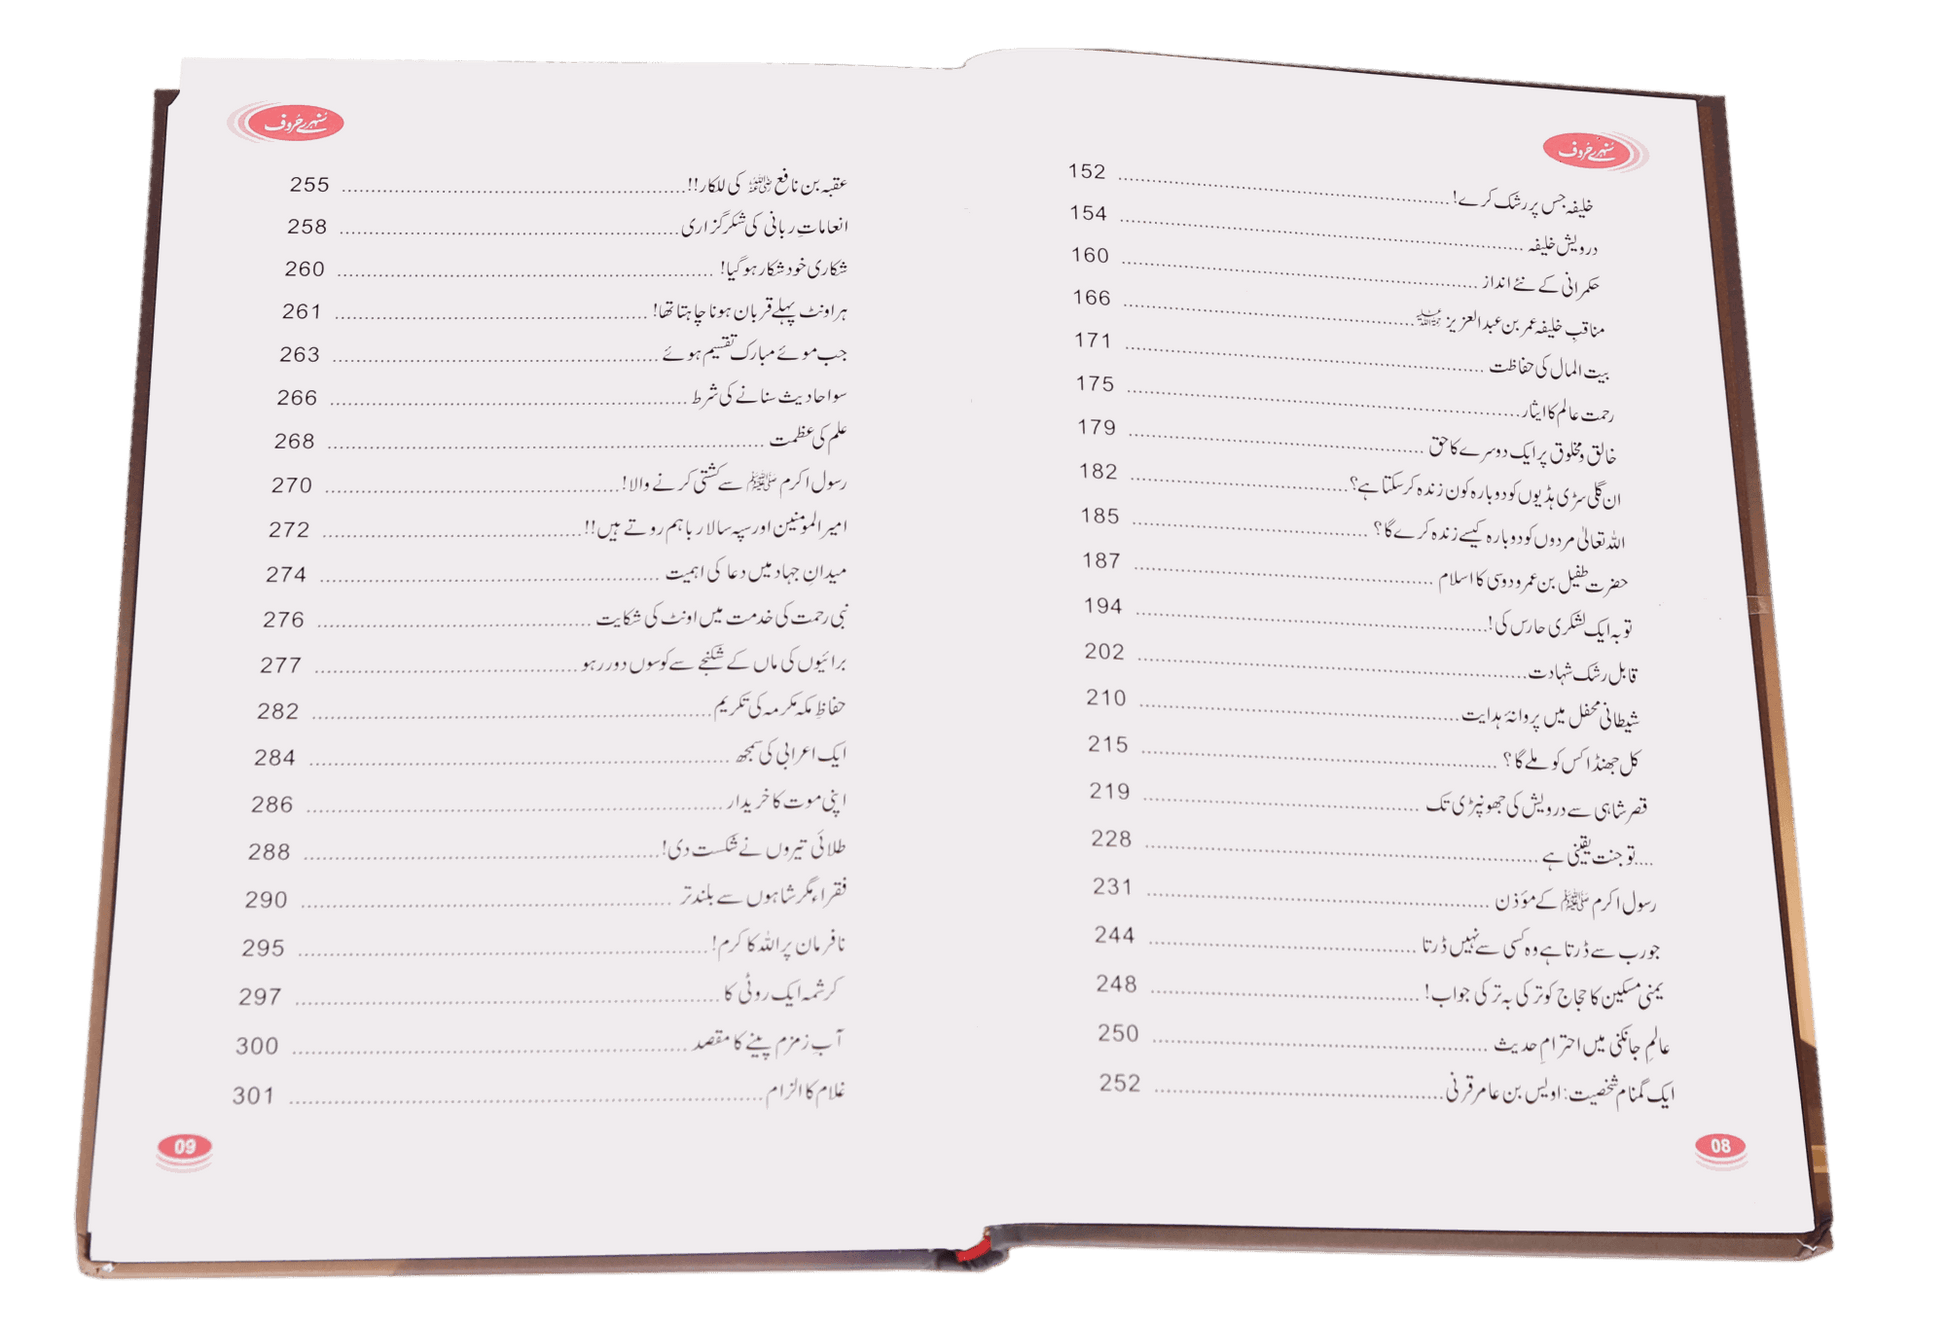 سُنہرے حُروف
خلیفہ جس پر رشک کرے! 152
درویش خلیفہ 154
حکمرانی کے نئے انداز 160
مناقبِ خلیفہ عمر بن عبدالعزیز رحمہ اللہ 166
بیت المال کی حفاظت 171
رحمت عالم کا ایثار 175
خالق و مخلوق پر ایک دوسرے کا حق 179
ان گلی سڑی ہڈیوں کو دوبارہ کون زندہ کر سکتا ہے؟ 182
اللہ تعالیٰ مردوں کو دوبارہ کیسے زندہ کرے گا؟ 185
حضرت طفیل بن عمرو دوسی کا اسلام 187
توبہ ایک لشکری حارس کی! 194
قابل رشک شہادت 202
شیطانی محفل میں پروانۂ ہدایت 210
کل جھنڈا کس کو ملے گا؟ 215
قصر شاہی سے درویش کی جھونپڑی تک 219
....تو جنت یقینی ہے 228
رسول اکرم ﷺ کے مؤذن 231
جو رب سے ڈرتا ہے وہ کسی سے نہیں ڈرتا 244
یمنی مسکین کا حجاج کو ترکی بہ ترکی جواب! 248
عالمِ جانکنی میں احترامِ حدیث 250
ایک گمنام شخصیت: اویس بن عامر قرنی 252
08
سُنہرے حُروف
عقبہ بن نافع رضی اللہ عنہ کی للکار!! 255
انعاماتِ ربانی کی شکر گزاری 258
شکاری خود شکار ہو گیا! 260
ہر اونٹ پہلے قربان ہونا چاہتا تھا! 261
جب موئے مبارک تقسیم ہوئے 263
سو احادیث سنانے کی شرط 266
علم کی عظمت 268
رسول اکرم ﷺ سے کشتی کرنے والا! 270
امیر المومنین اور سپہ سالار باہم روتے ہیں!! 272
میدانِ جہاد میں دعا کی اہمیت 274
نبی رحمت کی خدمت میں اونٹ کی شکایت 276
برائیوں کی ماں کے شکنجے سے کوسوں دور رہو 277
حفاظِ مکہ مکرمہ کی تکریم 282
ایک اعرابی کی سمجھ 284
اپنی موت کا خریدار 286
طلائی تیروں نے شکست دی! 288
فقراء مگر شاہوں سے بلند تر 290
نافرمان پر اللہ کا کرم! 295
کرشمہ ایک روٹی کا 297
آب زمزم پینے کا مقصد 300
غلام کا الزام 301
09